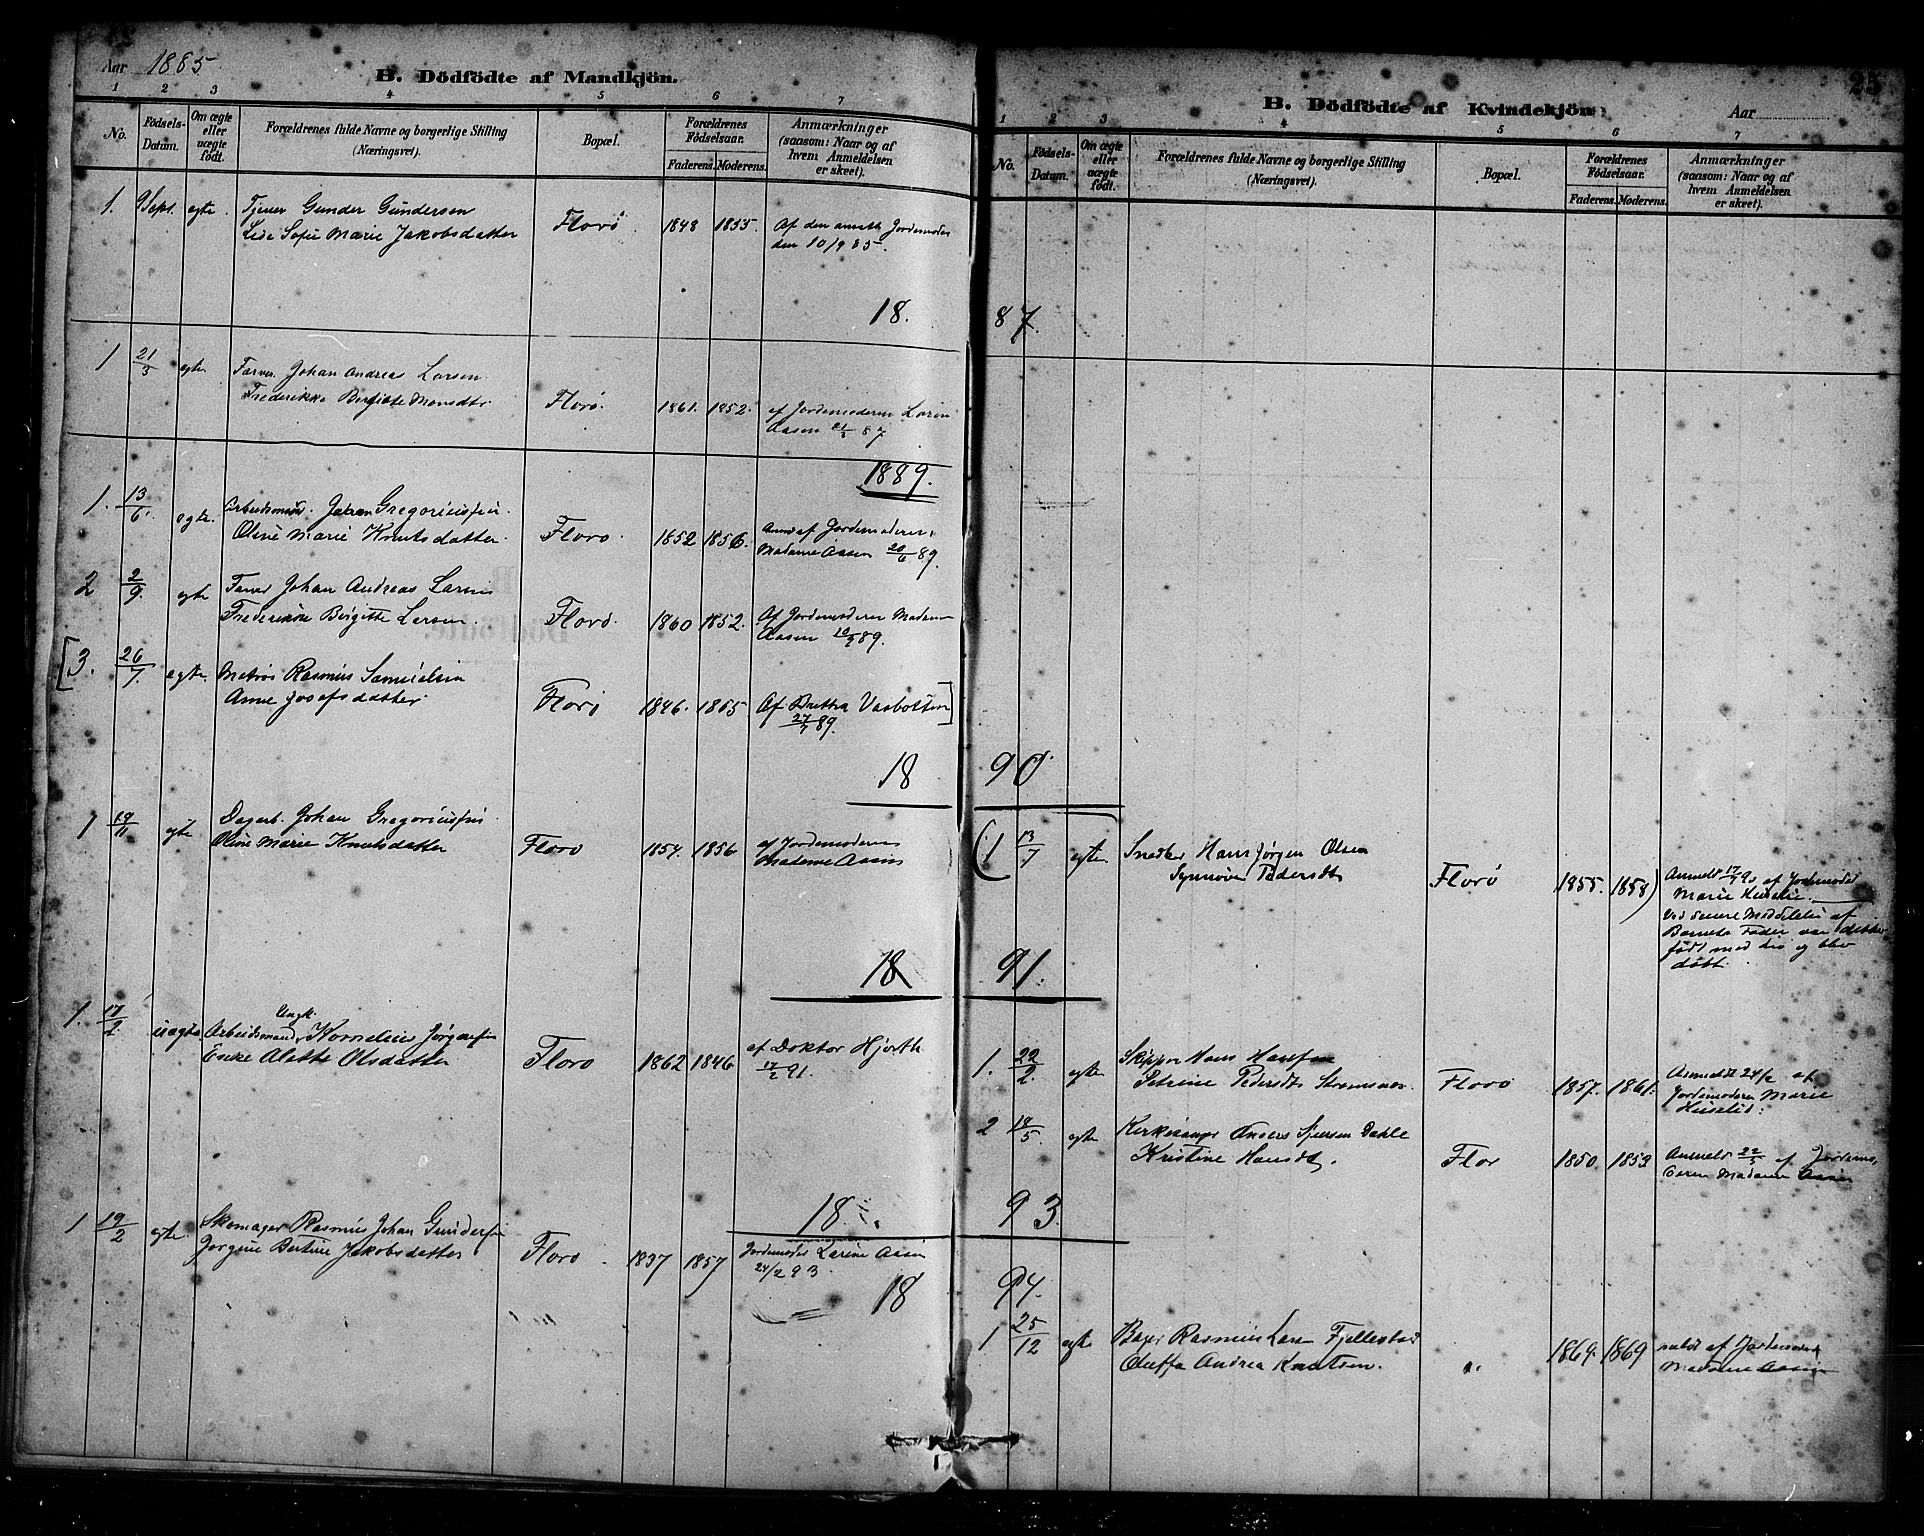 Aar 1885
B. Dödfödte af Mandkjön.
1 2 3 4 5 6 7
No. Födsels-Datum. Om ægte eller uægte født. Forældrenes fulde Navne og borgerlige Stilling (Næringsvei). Bopæl. Forældrenes Födselsaar. Faderens. Moderens. Anmærkninger (saasom: Naar og af hvem Anmeldelsen er skeet).
1. 9 Sept. egte. Tjener Gunder Gundersen
Sofie Marie Jakobsdatter Florö. 1848 1855. Af den ansatte Jordemoder
den 10/9 85.
18.
1 21/3 egte Farver. Johan Andreas Larsen
Frederikke Birgitte Monsdtr Florö. 1861. 1852. af Jordemoderen Larin
Aasen 21/3 87
1889.
1. 13/6. egte. Arbeidsmand. Johan Gregoriussen.
Oline Marie Knutsdatter. Floro. 1852 1856. Anm af Jordemoderen,
Madame Aasen 20/6 89.
2 2/9. egte Farver Johan Andreas Larsen
Frederikke Birgitte Larsen. Florö. 1860 1852. Af Jordemoderen Madame
Aasen 10/9 89.
[3. 26/7. egte. Matros Rasmus Samuelsen
Anne Josefsdatter Florö 1846. 1865 Af Brettha Vasbotten]
27/7 89.
18
1 19/11 egte Dagarb. Johan Gregoriussen
Oline Marie Knutsdatter Floro 1854. 1856 af Jordemoderen
Madame Aasen
18
1. 17/2. uegte Arbeidsmand, Ungk. Kornelius Jørgensen
Alette Olsdatter Floro 1862 1846 af Doktor Hjorth
17/2 91.
18
1 19/2 egte. Skomager Rasmus Johan Gundersen
Jorgine Bertine Jakobsdatter Floro. 1837 1857 Jordemoder Larine Aasen
24/2 93.
18
25
B. Dödfödte af Kvindekjön.
Aar
1 2 3 4 5 6 7
No. Födsels-Datum. Om ægte eller uægte födt. Forældrenes fulde Navne og borgerlige Stilling (Næringsvei). Bopæl. Forældrenes Födselsaar. Faderens. Moderens. Anmærkninger (saasom: Naar og af hvem Anmeldelsen er skeet).
87.
90.
(1 13/7 egte Snedker Hans Jørgen Olsen
Synnøve Pedersdtr Florö 1855. 1858) Anmeldt 17/7 90 af Jordemoder
Marie Huselie.
Ved senere Meddelelse af
Barnets Fader var dette
født med Liv og blev
døbt.
91.
1. 22/2. egte Skipper Hans Hansen
Petrine Pedersdtr Strømsnes. Florö 1857. 1861. Anmeldt 24/2 af
Jordemoderen Marie
Huselid.
2 18/5. egte Kirkesanger Anders Sjursen Dahle
Kristine Hansdtr. Flor 1850. 1853 Anmeldt 22/5 af Jordemo-
deren Madame Aasen
93.
94.
1 25/12 egte Rasmus Larsen Fjellestad
Oluffa Andrea Knutsen. " 1869. 1869 af Jordemoder
Madame Aasen